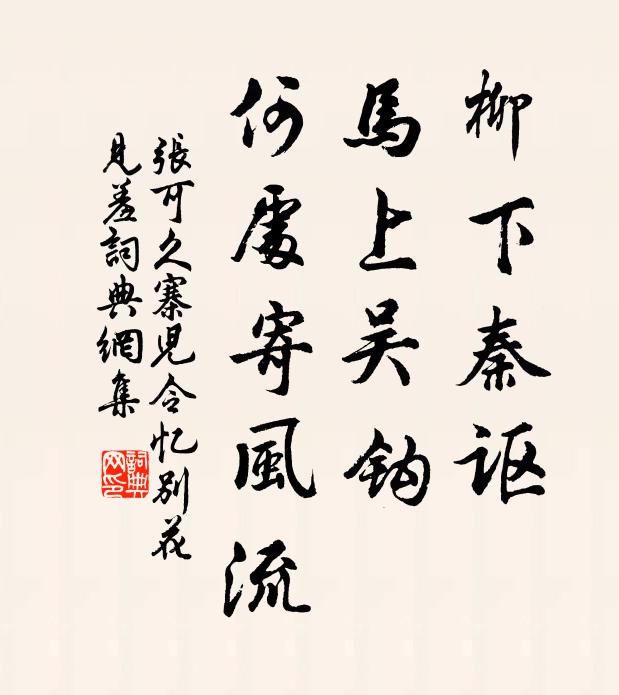 柳下秦讴
馬上吴钩
何處寄風流
張可久寨児令忆别花
見羞詞典網集
詞典
网印